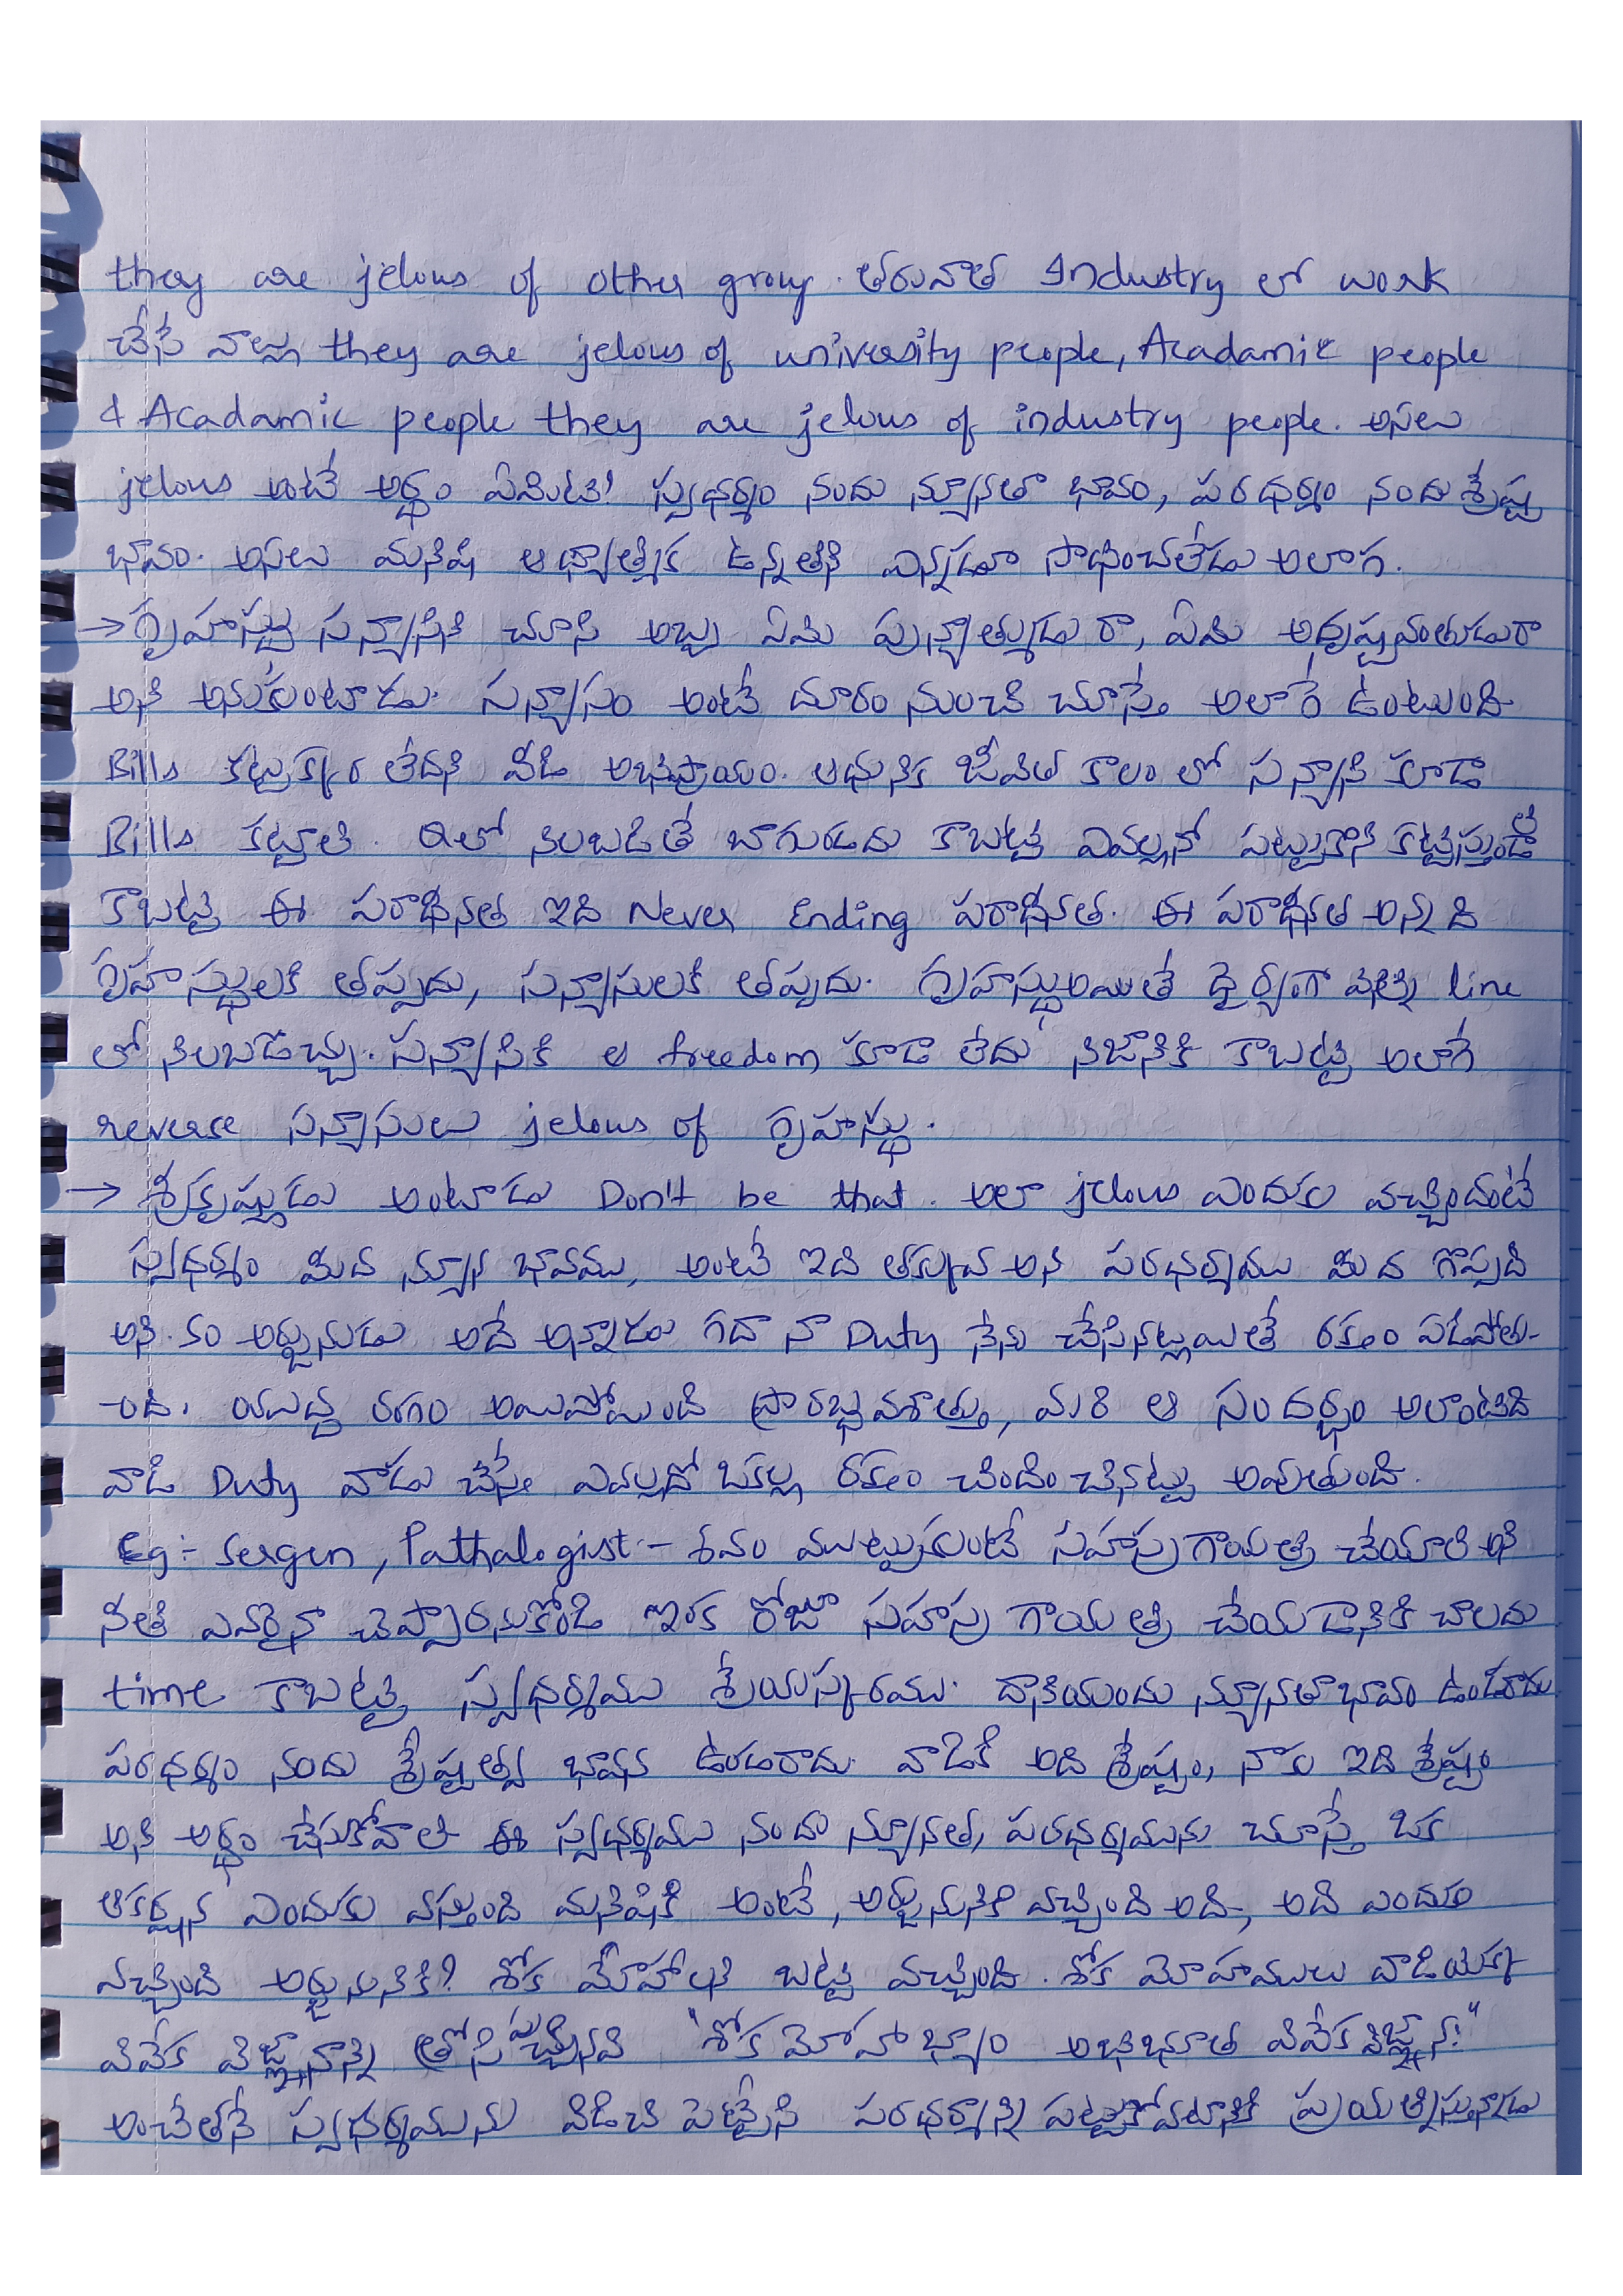 they are jelous of other group. తరువాత Industry లో work
చేసే వాల్లు they are jelous of university people, Acadamic people
& Acadamic people they are jelous of industry people. అసలు
jelous అంటే అర్థం ఏమిటి! స్వధర్మం నందు న్యూనతా భావం, పరధర్మం నందు శ్రేష్ట
భావం. అసలు మనిషి ఆధ్యాత్మిక ఉన్నతిని ఎన్నడూ సాధించలేడు అలాగ.
→ గృహస్థు సన్యాసిని చూసి అబ్బ ఏమి పుణ్యాత్ముడు రా, ఏమి అదృష్టవంతుడురా
అని అనుకుంటాడు. సన్యాసం అంటే దూరం నుంచి చూస్తే అలాగే ఉంటుంది
Bills కట్టుక్కర లేదని వీడి అభిప్రాయం. ఆధునిక జీవిత కాలం లో సన్యాసి కూడా
Bills కట్టాలి. Qలో నిలబడితే బాగుండదు కాబట్టి ఎవల్లనో పట్టుకొని కట్టిస్తుండే
కాబట్టి ఈ పరాధీనత ఇది Never Ending పరాధీనత. ఈ పరాధీనత అన్నది
గృహస్థులకి తప్పదు, సన్యాసులకి తప్పదు. గృహస్థుఅయితే ధైర్యంగా వెళ్ళి line
లో నిలబడొచ్చు. సన్యాసికి ఆ freedom కూడా లేదు నిజానికి కాబట్టి అలాగే
reverse సన్యాసులు jelous of గృహస్థు.
→ శ్రీకృష్ణుడు అంటాడు Don't be that. అలా jelous ఎందుకు వచ్చిందంటే
స్వధర్మం మీద న్యూన భావము, అంటే ఇది తక్కువ అని పరధర్మము మీద గొప్పది
అని. అర్జునుడు అదే అన్నాడు గదా నా Duty నేను చేసినట్లయితే రక్తం పడిపోతు-
-ంది. యుద్ధ రంగం అయిపోయింది ప్రారబ్ధవశాత్తు, మరి ఆ సందర్భం అలాంటిది
వాడి Duty వాడు చేస్తే ఎవల్లదో ఒకల్ల రక్తం చిందించినట్టు అవుతుంది.
Eg:- Sergen, Pathalogist - శవం ముట్టుకుంటే సహస్రగాయత్రి చేయాలి అని
నీతి ఎవరైనా చెప్పారనుకోండి ఇంక రోజూ సహస్ర గాయత్రి చేయడానికి చాలదు
time కాబట్టి స్వధర్మము శ్రేయస్కరము. దానియందు న్యూనతాభావం ఉండరాదు
పరధర్మం నందు శ్రేష్ఠత్వ భావన ఉండరాదు. వాడికి అది శ్రేష్ఠం, నాకు ఇది శ్రేష్ఠం
అని అర్థం చేసుకోవాలి ఈ స్వధర్మము నందు న్యూనత, పరధర్మమును చూస్తే ఒక
ఆకర్షన ఎందుకు వస్తుంది మనిషికి అంటే, అర్జునునికి వచ్చింది అది, అది ఎందుకు
వచ్చింది అర్జునునికి? శోక మోహాలని బట్టి వచ్చింది. శోక మోహములు వాడియొక్క
వివేక విజ్ఞానాన్ని త్రోసిపుచ్చినవి "శోకమోహాభ్యాం అభిభూత వివేకవిజ్ఞానః"
అంచేతనే స్వధర్మమును విడిచి పెట్టేసి పరధర్మాన్ని పట్టుకోవటానికి ప్రయత్నిస్తున్నాడు